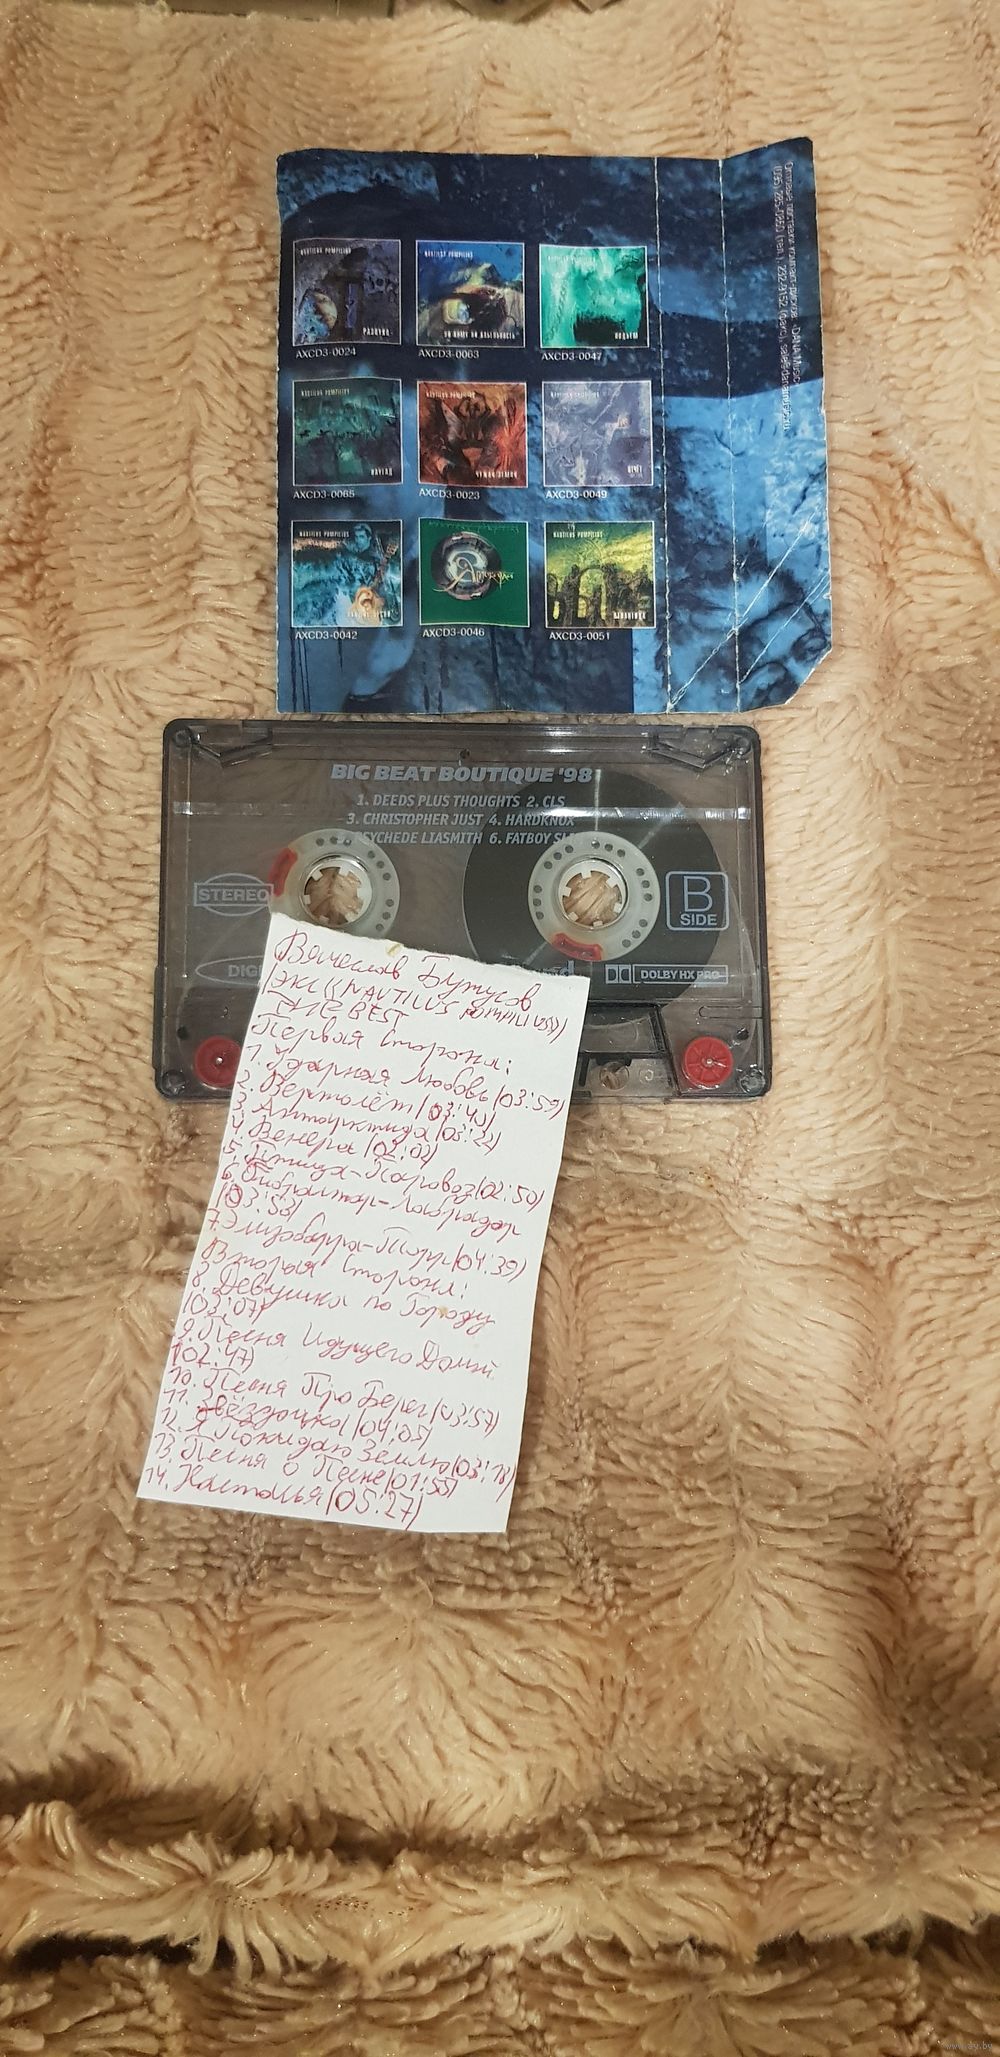 Оптовые поставки компакт-дисков: «DANA Music»
NAUTILUS POMPILIUS
РАЗЛУКА
AXCD3-0024
NAUTILUS POMPILIUS
AXCD3-0063
NAUTILUS POMPILIUS
ПОДЪЕМ
AXCD3-0047
NAUTILUS POMPILIUS
НАУГАД
AXCD3-0065
NAUTILUS POMPILIUS
ЧУЖАЯ ЗЕМЛЯ
AXCD3-0023
NAUTILUS POMPILIUS
ОТЧЁТ
AXCD3-0049
NAUTILUS POMPILIUS
AXCD3-0042
Атлантида
AXCD3-0046
NAUTILUS POMPILIUS
ЯБЛОКИТАЙ
AXCD3-0051
BIG BEAT BOUTIQUE '98
1. DEEDS PLUS THOUGHTS 2. CLS
3. CHRISTOPHER JUST 4. HARDKNOX
PSYCHEDE LIASMITH 6. FATBOY
STEREO
B
SIDE
DOLBY HX PRO
Вячеслав Бутусов
/ЭКС ((NAUTILUS POMPILIUS))/
THE BEST
Первая Сторона:
1. Ударная Любовь/03:59/
2. Вертолёт/03:40/
3. Антарктида/03:22/
4. Венера/02:02/
5. Птица-Паровоз/02:50/
6. Гибралтар-Лабрадор
/03:53/
7. Элизобарра-Торр/04:39/
Вторая Сторона:
8. Девушка по Городу
/03:07/
9. Песня Идущего Домой
/02:47/
10. Песня Про Берег/03:57/
11. Звёздочка/04:05/
12. Я Покидаю Землю/03:18/
13. Песня о Песне/01:55/
14. Настасья/05:27/
www.ay.by